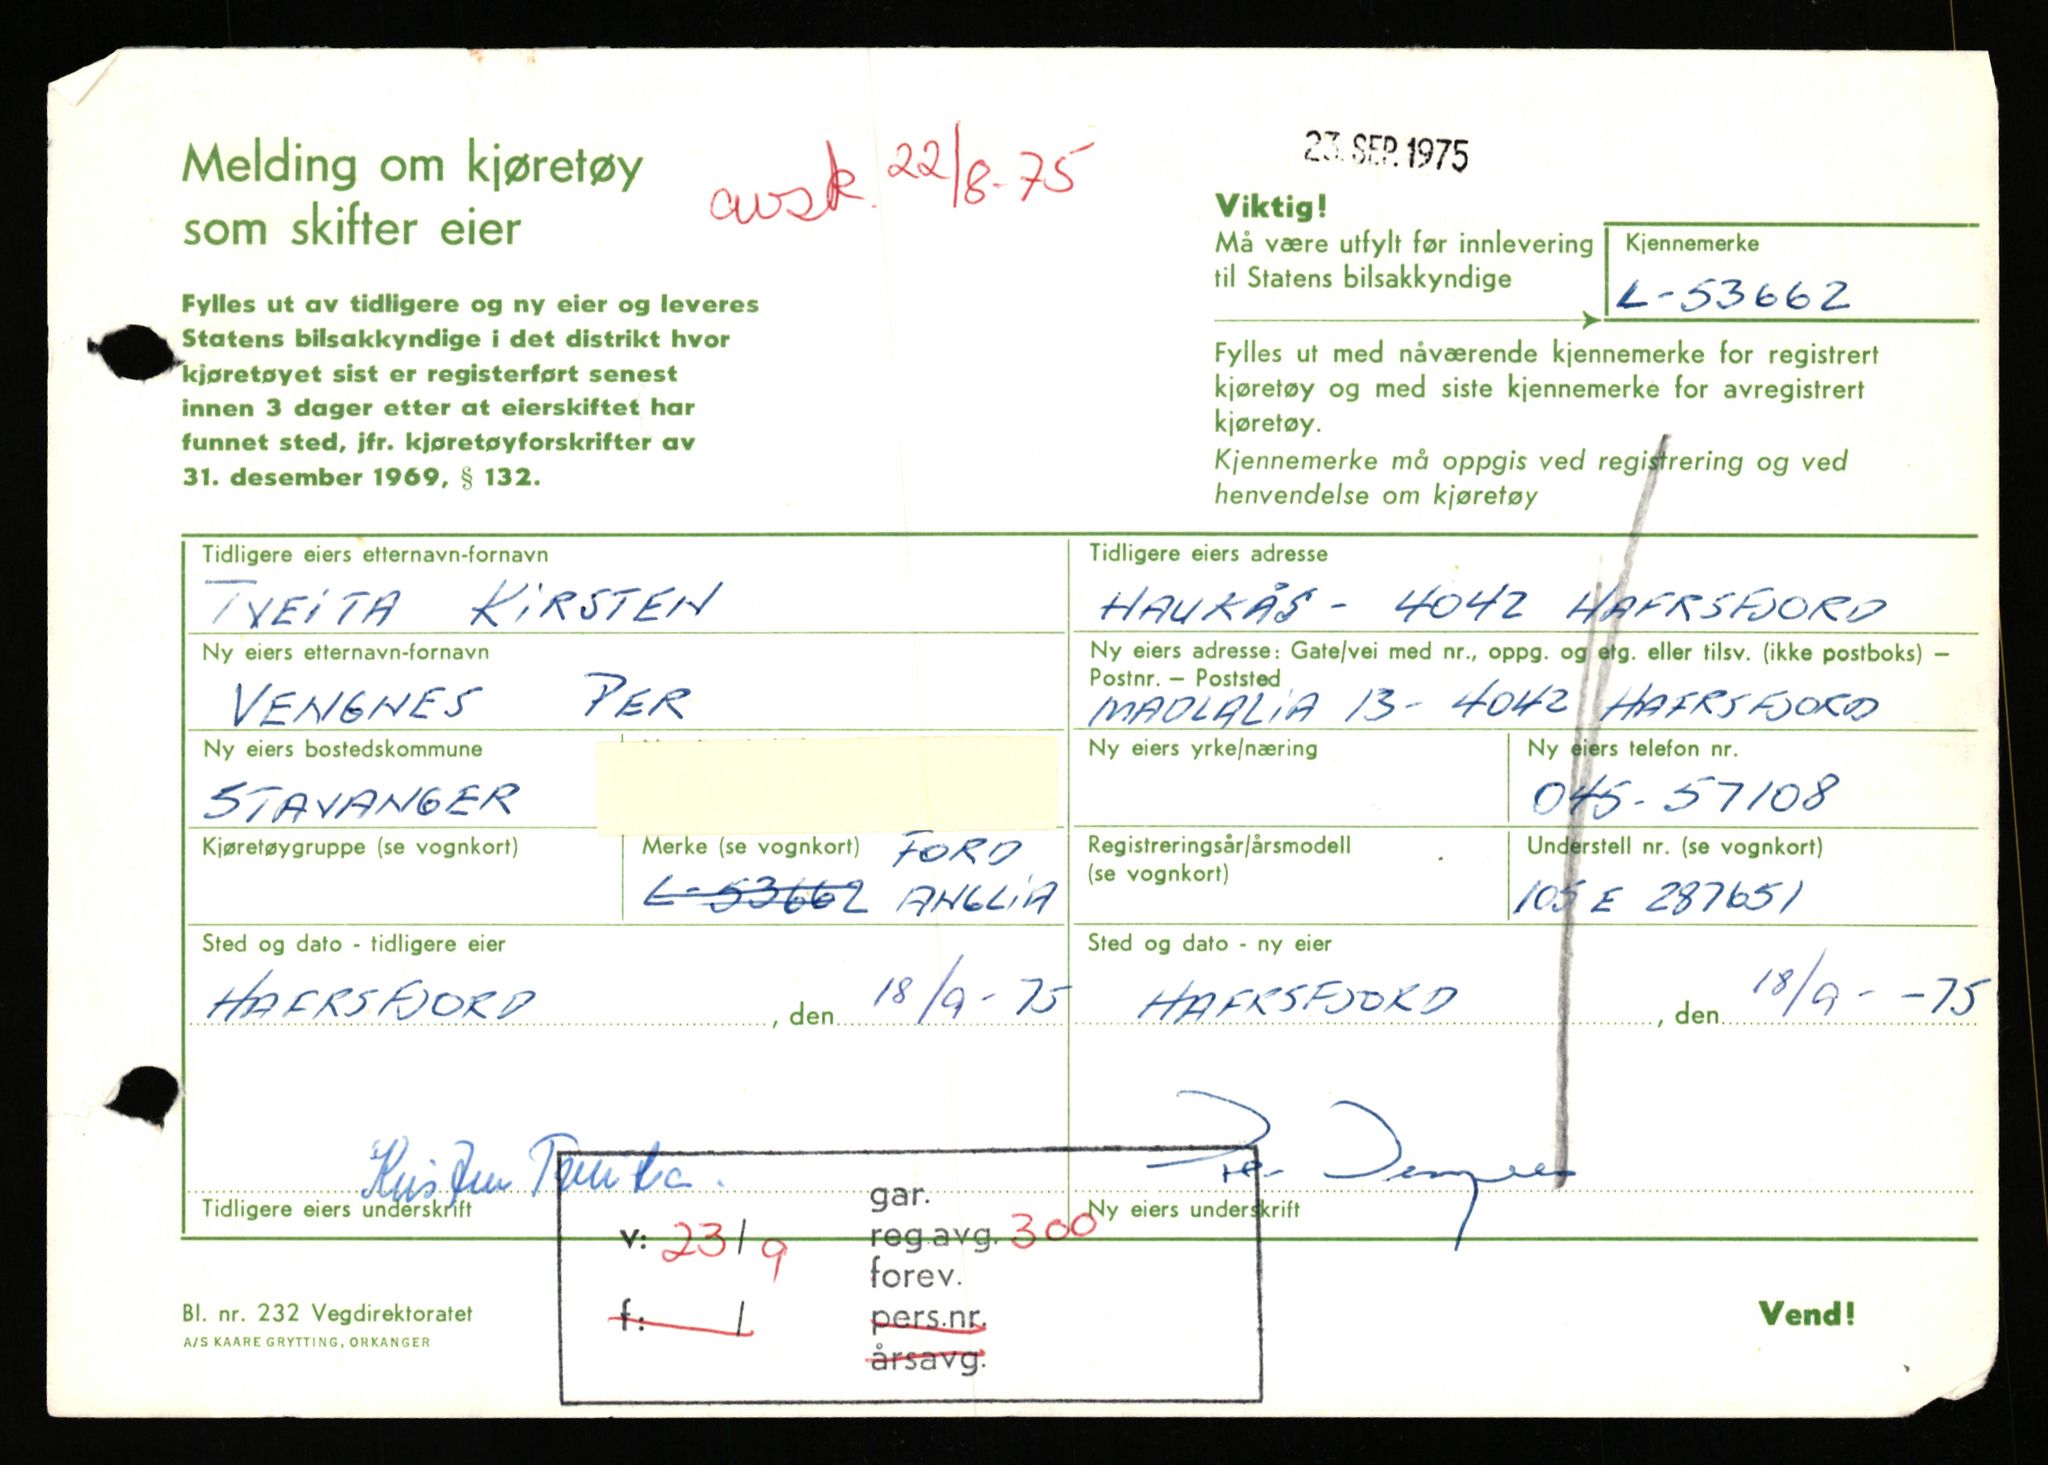 Melding om kjøretøy
som skifter eier
avsk. 22/8-75
23. SEP. 1975
Fylles ut av tidligere og ny eier og leveres
Statens bilsakkyndige i det distrikt hvor
kjøretøyet sist er registerført senest
innen 3 dager etter at eierskiftet har
funnet sted, jfr. kjøretøyforskrifter av
31. desember 1969, § 132.
Viktig!
Må være utfylt før innlevering
til Statens bilsakkyndige
Kjennemerke
L-53662
Fylles ut med nåværende kjennemerke for registrert
kjøretøy og med siste kjennemerke for avregistrert
kjøretøy.
Kjennemerke må oppgis ved registrering og ved
henvendelse om kjøretøy
Tidligere eiers etternavn-fornavn
TVEITA KIRSTEN
Tidligere eiers adresse
HAUKÅS - 4042 HAFRSFJORD
Ny eiers etternavn-fornavn
VENGNES PER
Ny eiers adresse: Gate/vei med nr., oppg. og etg. eller tilsv. (ikke postboks) –
Postnr. – Poststed
MADLALIA 13 - 4042 HAFRSFJORD
Ny eiers bostedskommune
STAVANGER
Ny eiers yrke/næring
Ny eiers telefon nr.
045-57108
Kjøretøygruppe (se vognkort)
Merke (se vognkort) FORD
L-53662 ANGLIA
Registreringsår/årsmodell
(se vognkort)
Understell nr. (se vognkort)
105 E 287651
Sted og dato - tidligere eier
HAFRSFJORD, den 18/9-75
Sted og dato - ny eier
HAFRSFJORD, den 18/9--75
Kirsten Tveita.
Tidligere eiers underskrift
Per Vengnes
Ny eiers underskrift
gar.
v: 23/9 reg.avg. 300
forev.
f: / pers.nr.
årsavg.
Bl. nr. 232 Vegdirektoratet
A/S KAARE GRYTTING, ORKANGER
Vend!